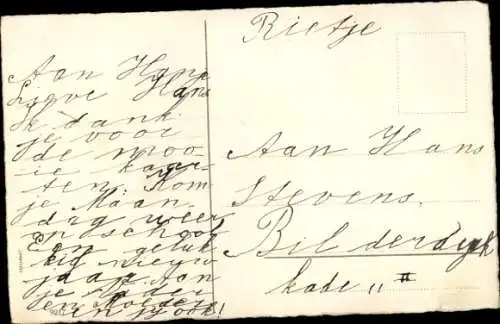 Aan Hans
Lieve Hans
Ik dank
je voor
de mooi
ie kaar
ten. Kom
je Maan
dag weer
op school
Een geluk
kig nieuw
jaar Aan
je
en
en jij ook!
Rietje
Aan Hans
Stevens
Bilderdijk
kade „ II